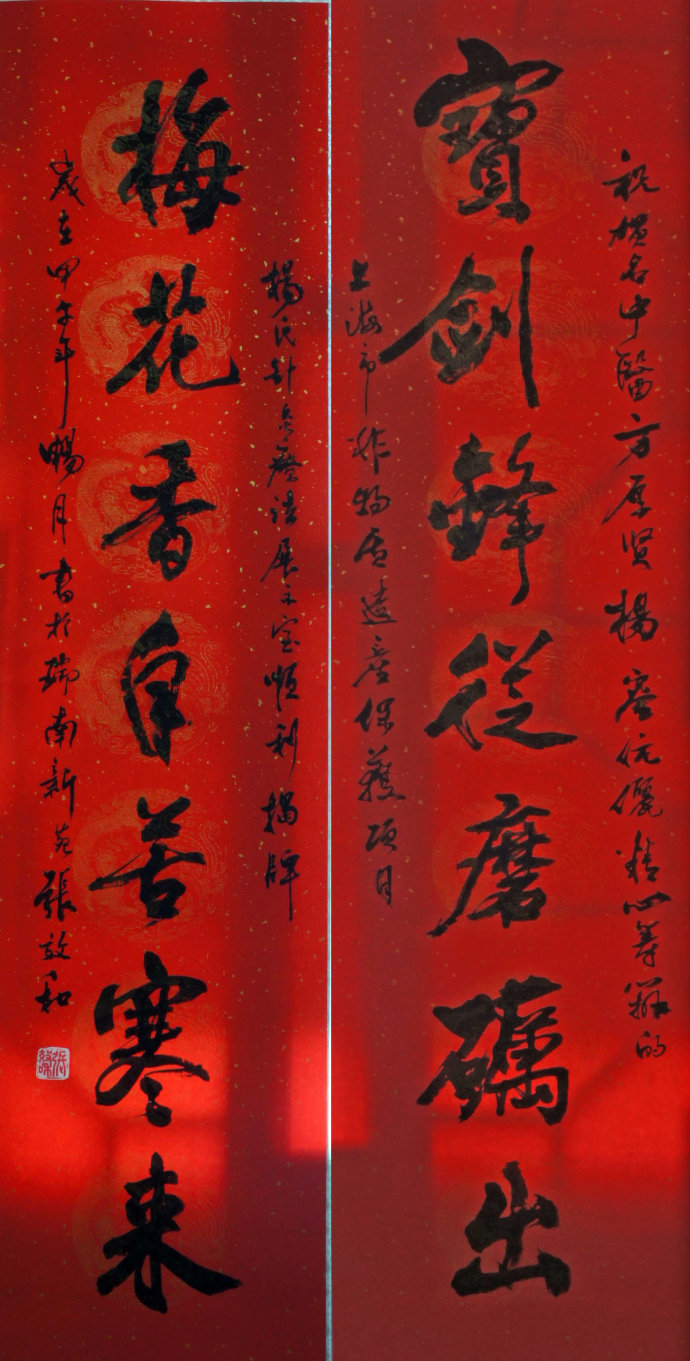 祝贺名中醫方厚贤楊容伉儷精心筹办的
寶劍鋒從磨礪出
上海市非物质遗产保護项目
楊氏针灸療法展示室順利揭牌
梅花香自苦寒来
歲在甲午年暢月書於瑞南新苑張效和